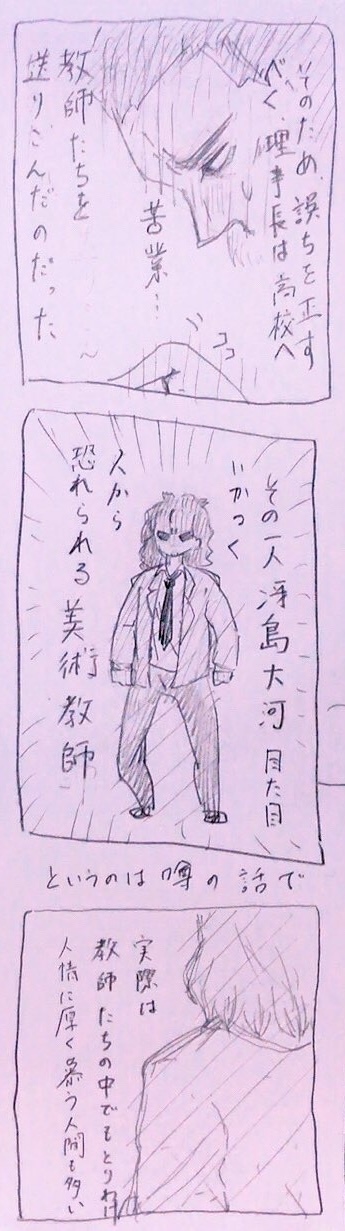 そのため、誤ちを正す
べく、理事長は高校へ
苦業…
教師たちを
送りこんだのだった
ココ
その一人 浮島大河 目た目
いかつく
人から
恐れられる美術教師
というのは噂の話で
実際は
教師たちの中でもとりわけ
人情に厚く慕う人間も多い